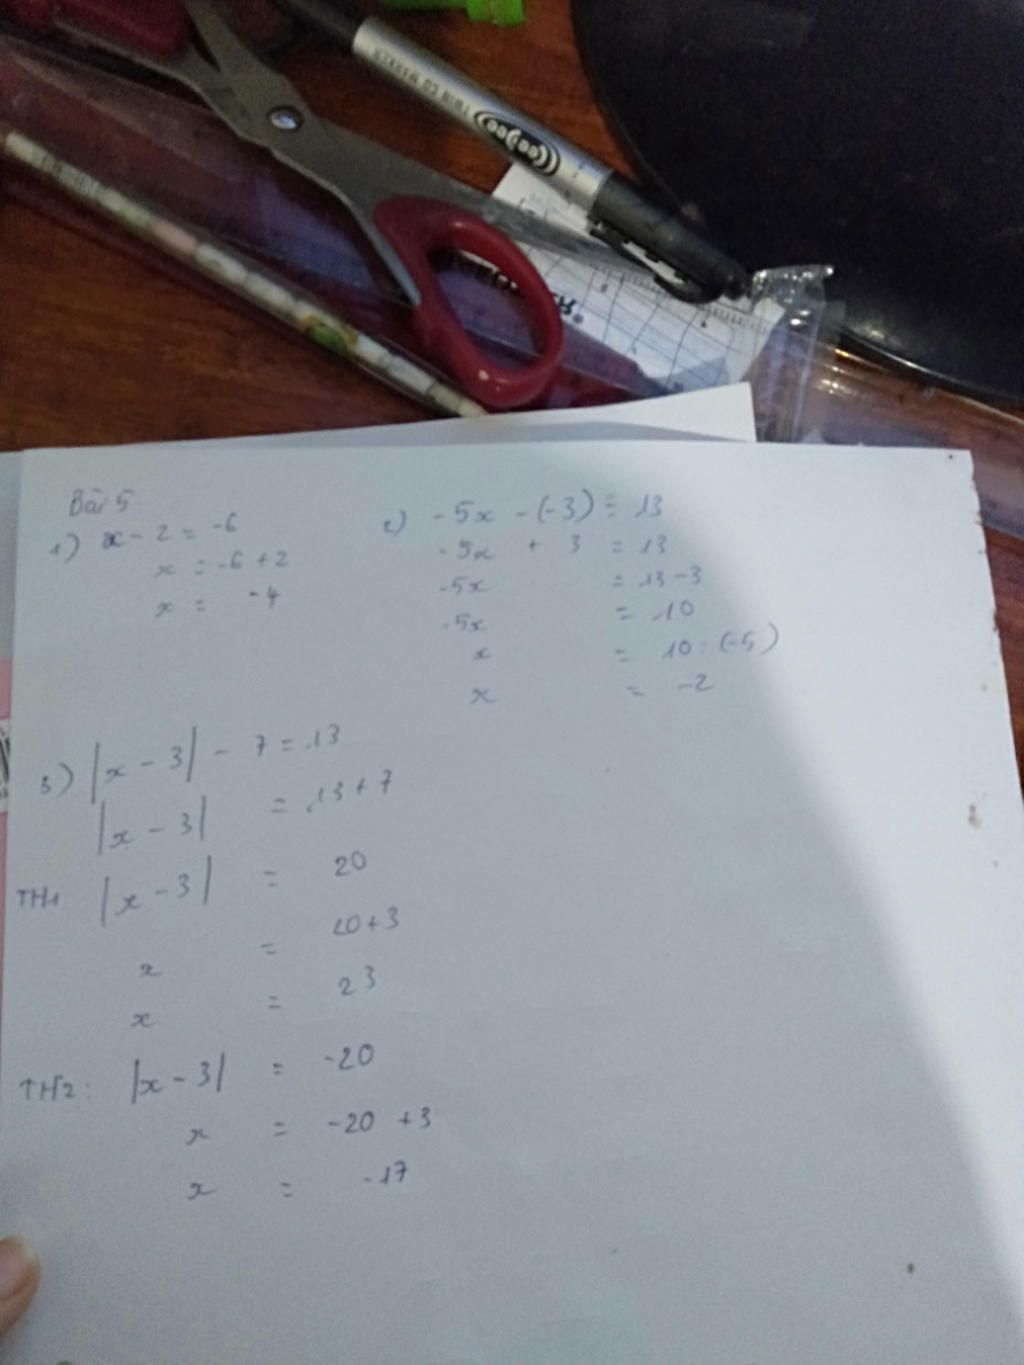 TWIN CD MARKER
eejee
Bài 5
1) x - 2 = -6
x = -6 + 2
x = -4
2) -5x - (-3) = 13
-5x + 3 = 13
-5x = 13 - 3
-5x = 10
x = 10 : (-5)
x = -2
3) |x - 3| - 7 = 13
|x - 3| = 13 + 7
TH1 |x - 3| = 20
x = 20 + 3
x = 23
TH2: |x - 3| = -20
x = -20 + 3
x = -17